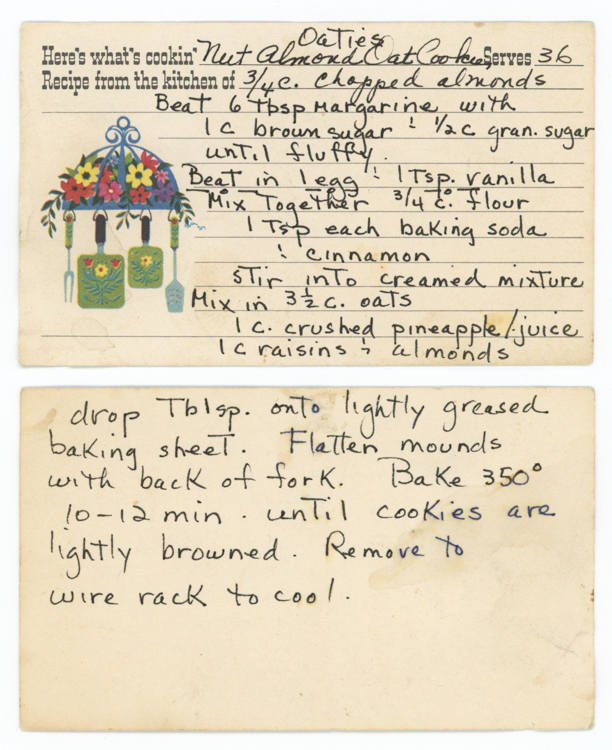 Oaties
Here's what's cookin' Nut Almond Oat Cookies Serves 36
Recipe from the kitchen of 3/4 c. chopped almonds
Beat 6 Tbsp Margarine with
1 c brown sugar & 1/2 c gran. sugar
until fluffy.
Beat in 1 egg & 1 Tsp. vanilla
Mix Together 3/4 c. flour
1 Tsp each baking soda
& cinnamon
stir into creamed mixture
Mix in 3 1/2 c. oats
1 c. crushed pineapple/juice
1 c raisins & almonds
drop Tblsp. onto lightly greased
baking sheet. Flatten mounds
with back of fork. Bake 350°
10-12 min. until cookies are
lightly browned. Remove to
wire rack to cool.